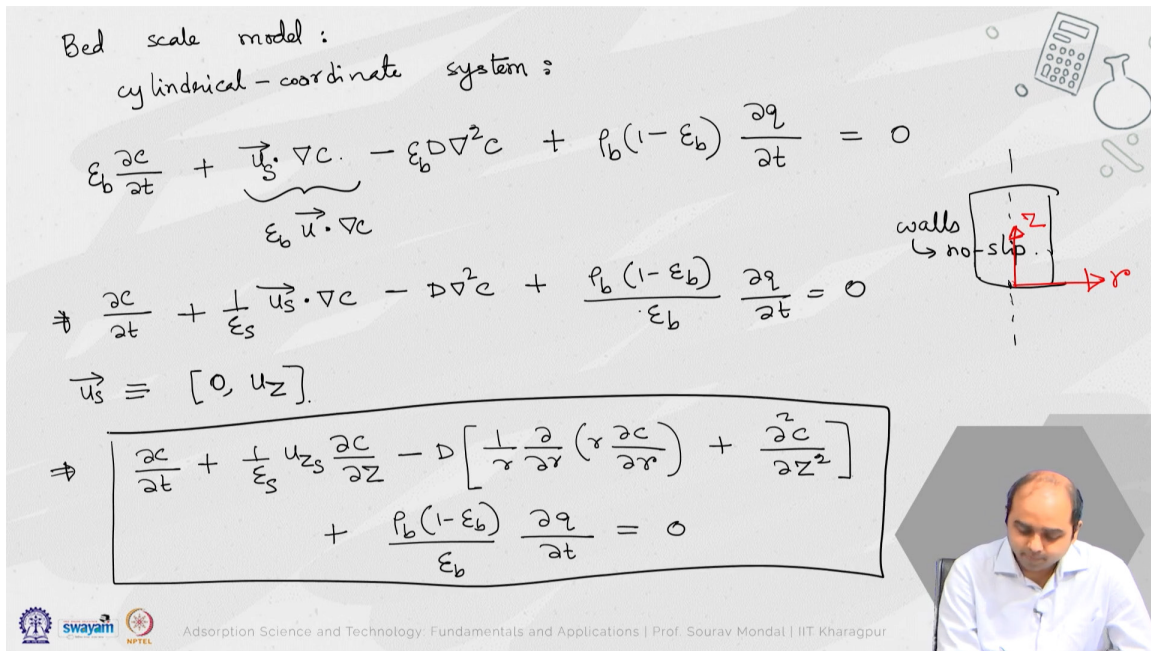 Bed scale model :
cylindrical - coordinate system :
ε_b ∂c/∂t + u_s⃗ · ∇c. − ε_b D∇²c + ρ_b (1 − ε_b) ∂q/∂t = 0
ε_b u⃗ · ∇c
walls
↳ no-slip.
z
r
⇒ ∂c/∂t + 1/ε_s u_s⃗ · ∇c − D∇²c + ρ_b (1 − ε_b)/ε_b ∂q/∂t = 0
u_s⃗ ≡ [0, u_z].
⇒ ∂c/∂t + 1/ε_s u_zs ∂c/∂z − D [ 1/r ∂/∂r ( r ∂c/∂r ) + ∂²c/∂z² ]
+ ρ_b (1 − ε_b)/ε_b ∂q/∂t = 0
swayam
NPTEL
Adsorption Science and Technology: Fundamentals and Applications | Prof. Sourav Mondal | IIT Kharagpur